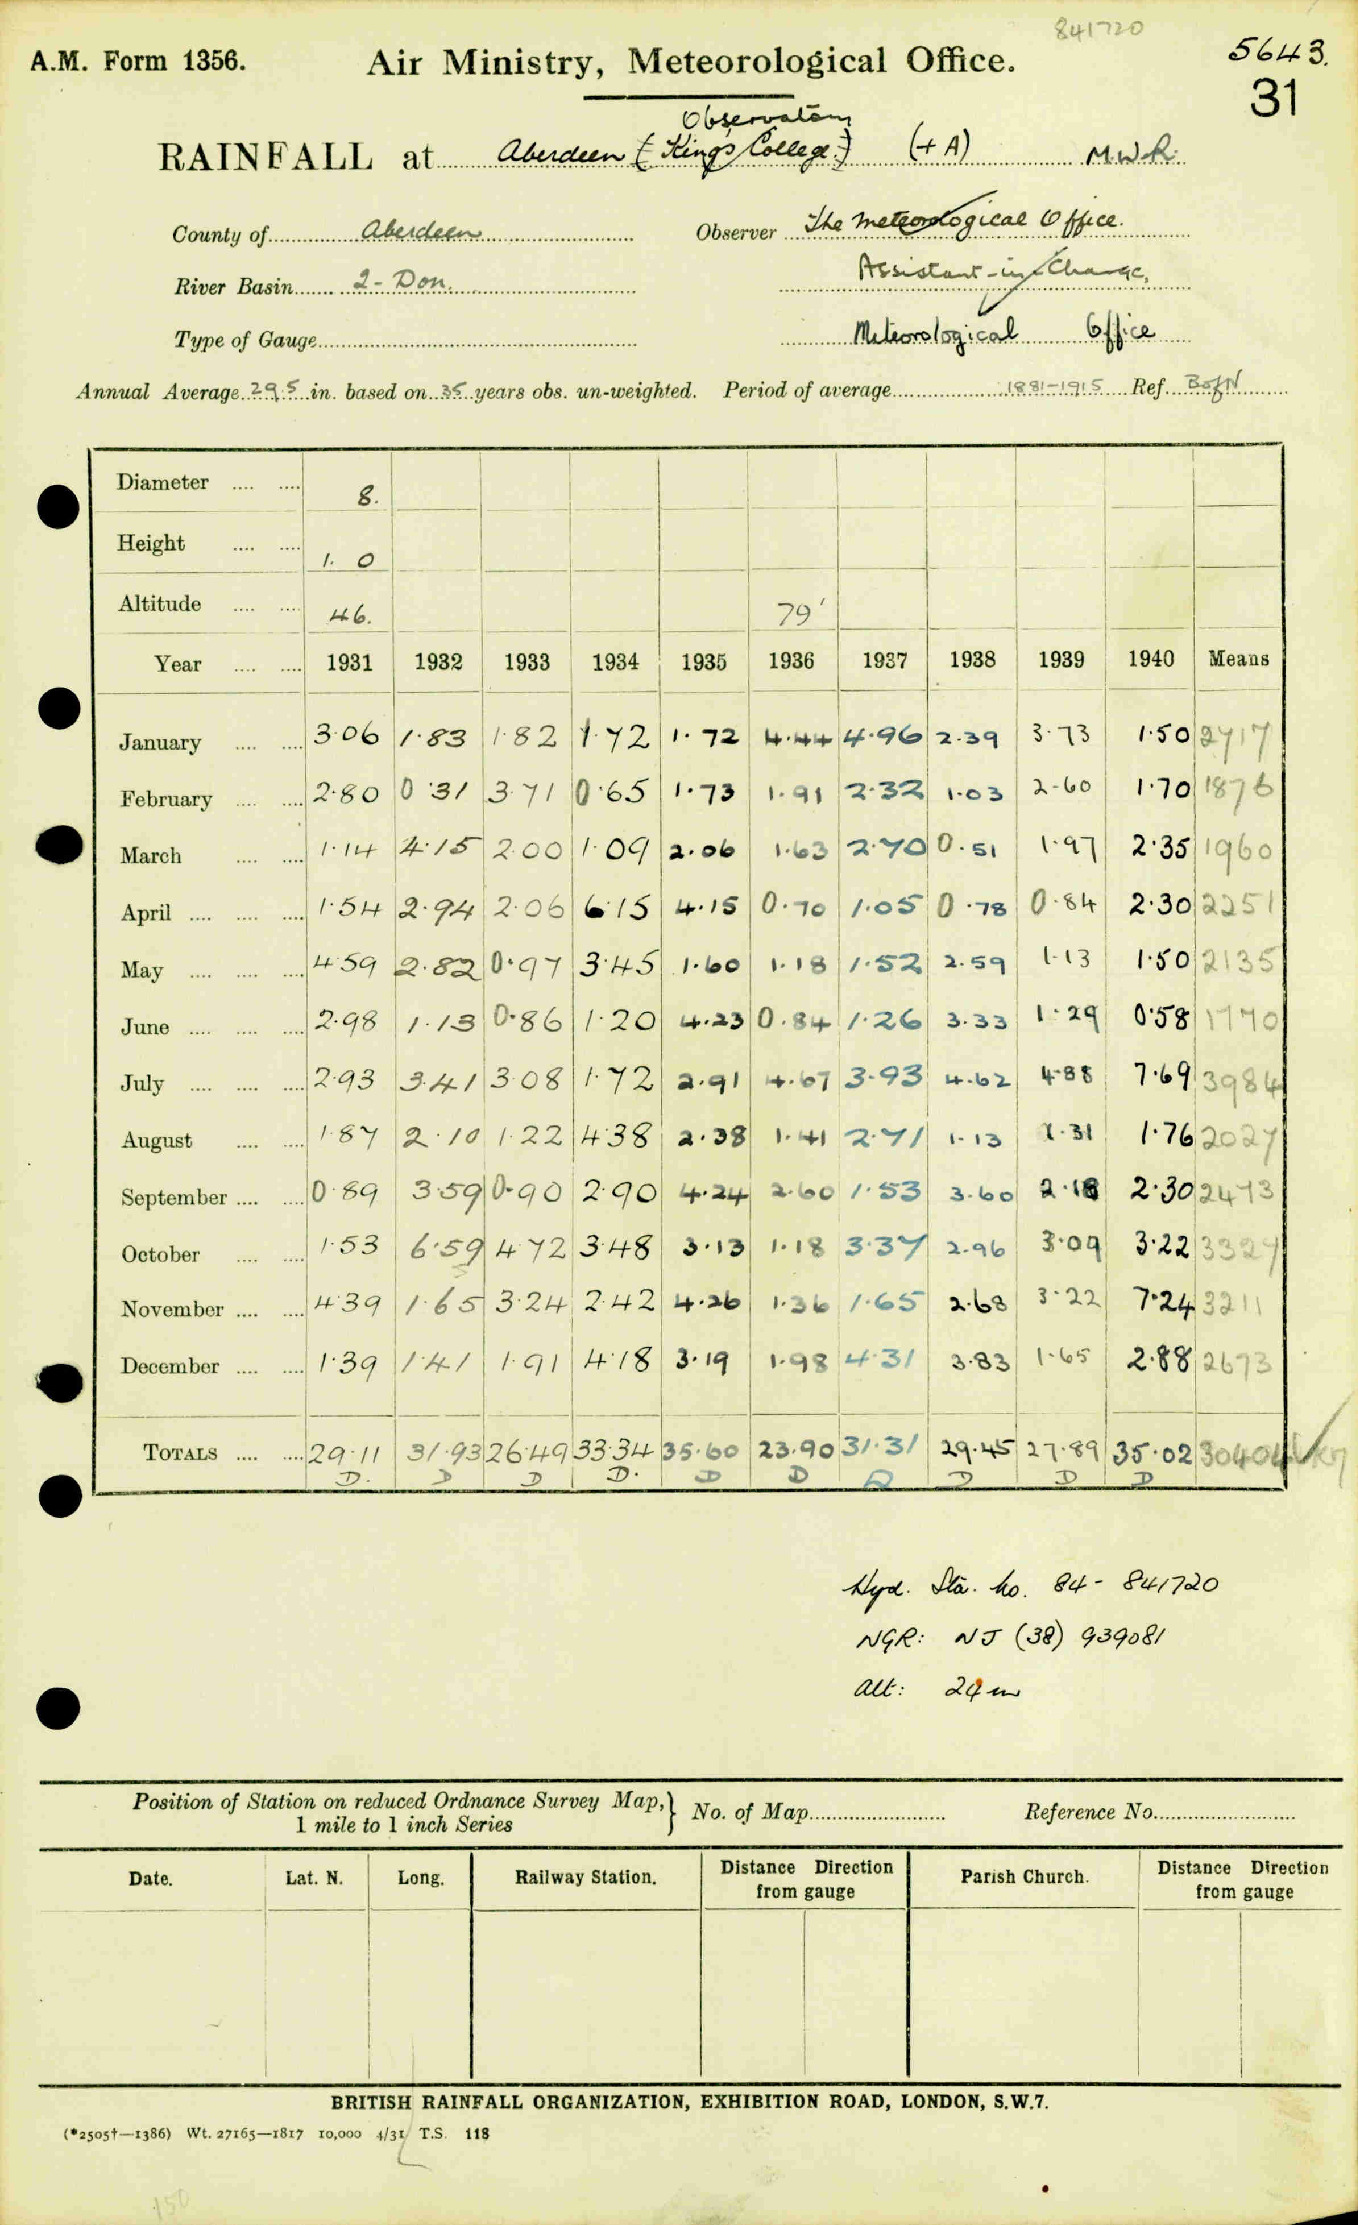 841720
A.M. Form 1356. Air Ministry, Meteorological Office. 5643.
31
Observatory
RAINFALL at Aberdeen (King's College) (+A) M.W.R.
County of Aberdeen Observer The Meteorological Office.
Assistant-in-Charge,
River Basin 2 - Don.
Type of Gauge Meteorological Office
Annual Average 29.5 in. based on 35 years obs. un-weighted. Period of average 1881-1915 Ref. B of N
Diameter .... .... 8.
Height .... .... 1. 0
Altitude .... .... 46. 79'
Year .... .... 1931 1932 1933 1934 1935 1936 1937 1938 1939 1940 Means
January .... .... 3·06 1·83 1·82 1·72 1·72 4·44 4·96 2·39 3·73 1·50 2717
February .... .... 2·80 0·31 3·71 0·65 1·73 1·91 2·32 1·03 2·60 1·70 1876
March .... .... 1·14 4·15 2·00 1·09 2·06 1·63 2·70 0·51 1·97 2·35 1960
April .... .... .... 1·54 2·94 2·06 6·15 4·15 0·70 1·05 0·78 0·84 2·30 2251
May .... .... .... 4·59 2·82 0·97 3·45 1·60 1·18 1·52 2·59 1·13 1·50 2135
June .... .... .... 2·98 1·13 0·86 1·20 4·23 0·84 1·26 3·33 1·29 0·58 1770
July .... .... .... 2·93 3·41 3·08 1·72 2·91 4·67 3·93 4·62 4·88 7·69 3984
August .... .... 1·87 2·10 1·22 4·38 2·38 1·41 2·71 1·13 1·31 1·76 2027
September .... .... 0·89 3·59 0·90 2·90 4·24 2·60 1·53 3·60 2·18 2·30 2473
October .... .... 1·53 6·59 4·72 3·48 3·13 1·18 3·37 2·96 3·09 3·22 3327
5
November .... .... 4·39 1·65 3·24 2·42 4·26 1·36 1·65 2·68 3·22 7·24 3211
December .... .... 1·39 1·41 1·91 4·18 3·19 1·98 4·31 3·83 1·65 2·88 2673
TOTALS .... .... 29·11 31·93 26·49 33·34 35·60 23·90 31·31 29·45 27·89 35·02 30404
D. D D D. D D D D D D
Hyd. Sta. No. 84 - 841720
NGR: NJ (38) 939081
Alt: 24m
Position of Station on reduced Ordnance Survey Map, } No. of Map Reference No.
1 mile to 1 inch Series
Date. Lat. N. Long. Railway Station. Distance Direction from gauge Parish Church. Distance Direction from gauge
BRITISH RAINFALL ORGANIZATION, EXHIBITION ROAD, LONDON, S.W.7.
(*2505†—1386) Wt. 27165—1817 10,000 4/31 T.S. 118
150